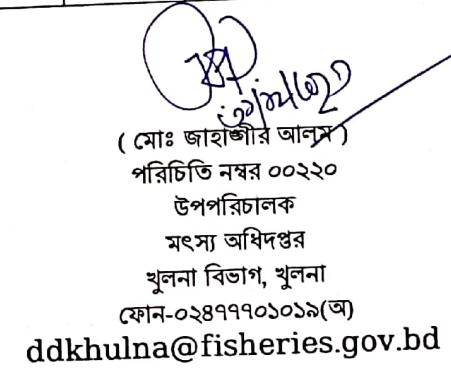 ( মোঃ জাহাঙ্গীর আলম )
পরিচিতি নম্বর ০০২২০
উপপরিচালক
মৎস্য অধিদপ্তর
খুলনা বিভাগ, খুলনা
ফোন-০২৪৭৭৭০১০১৯(অ)
ddkhulna@fisheries.gov.bd